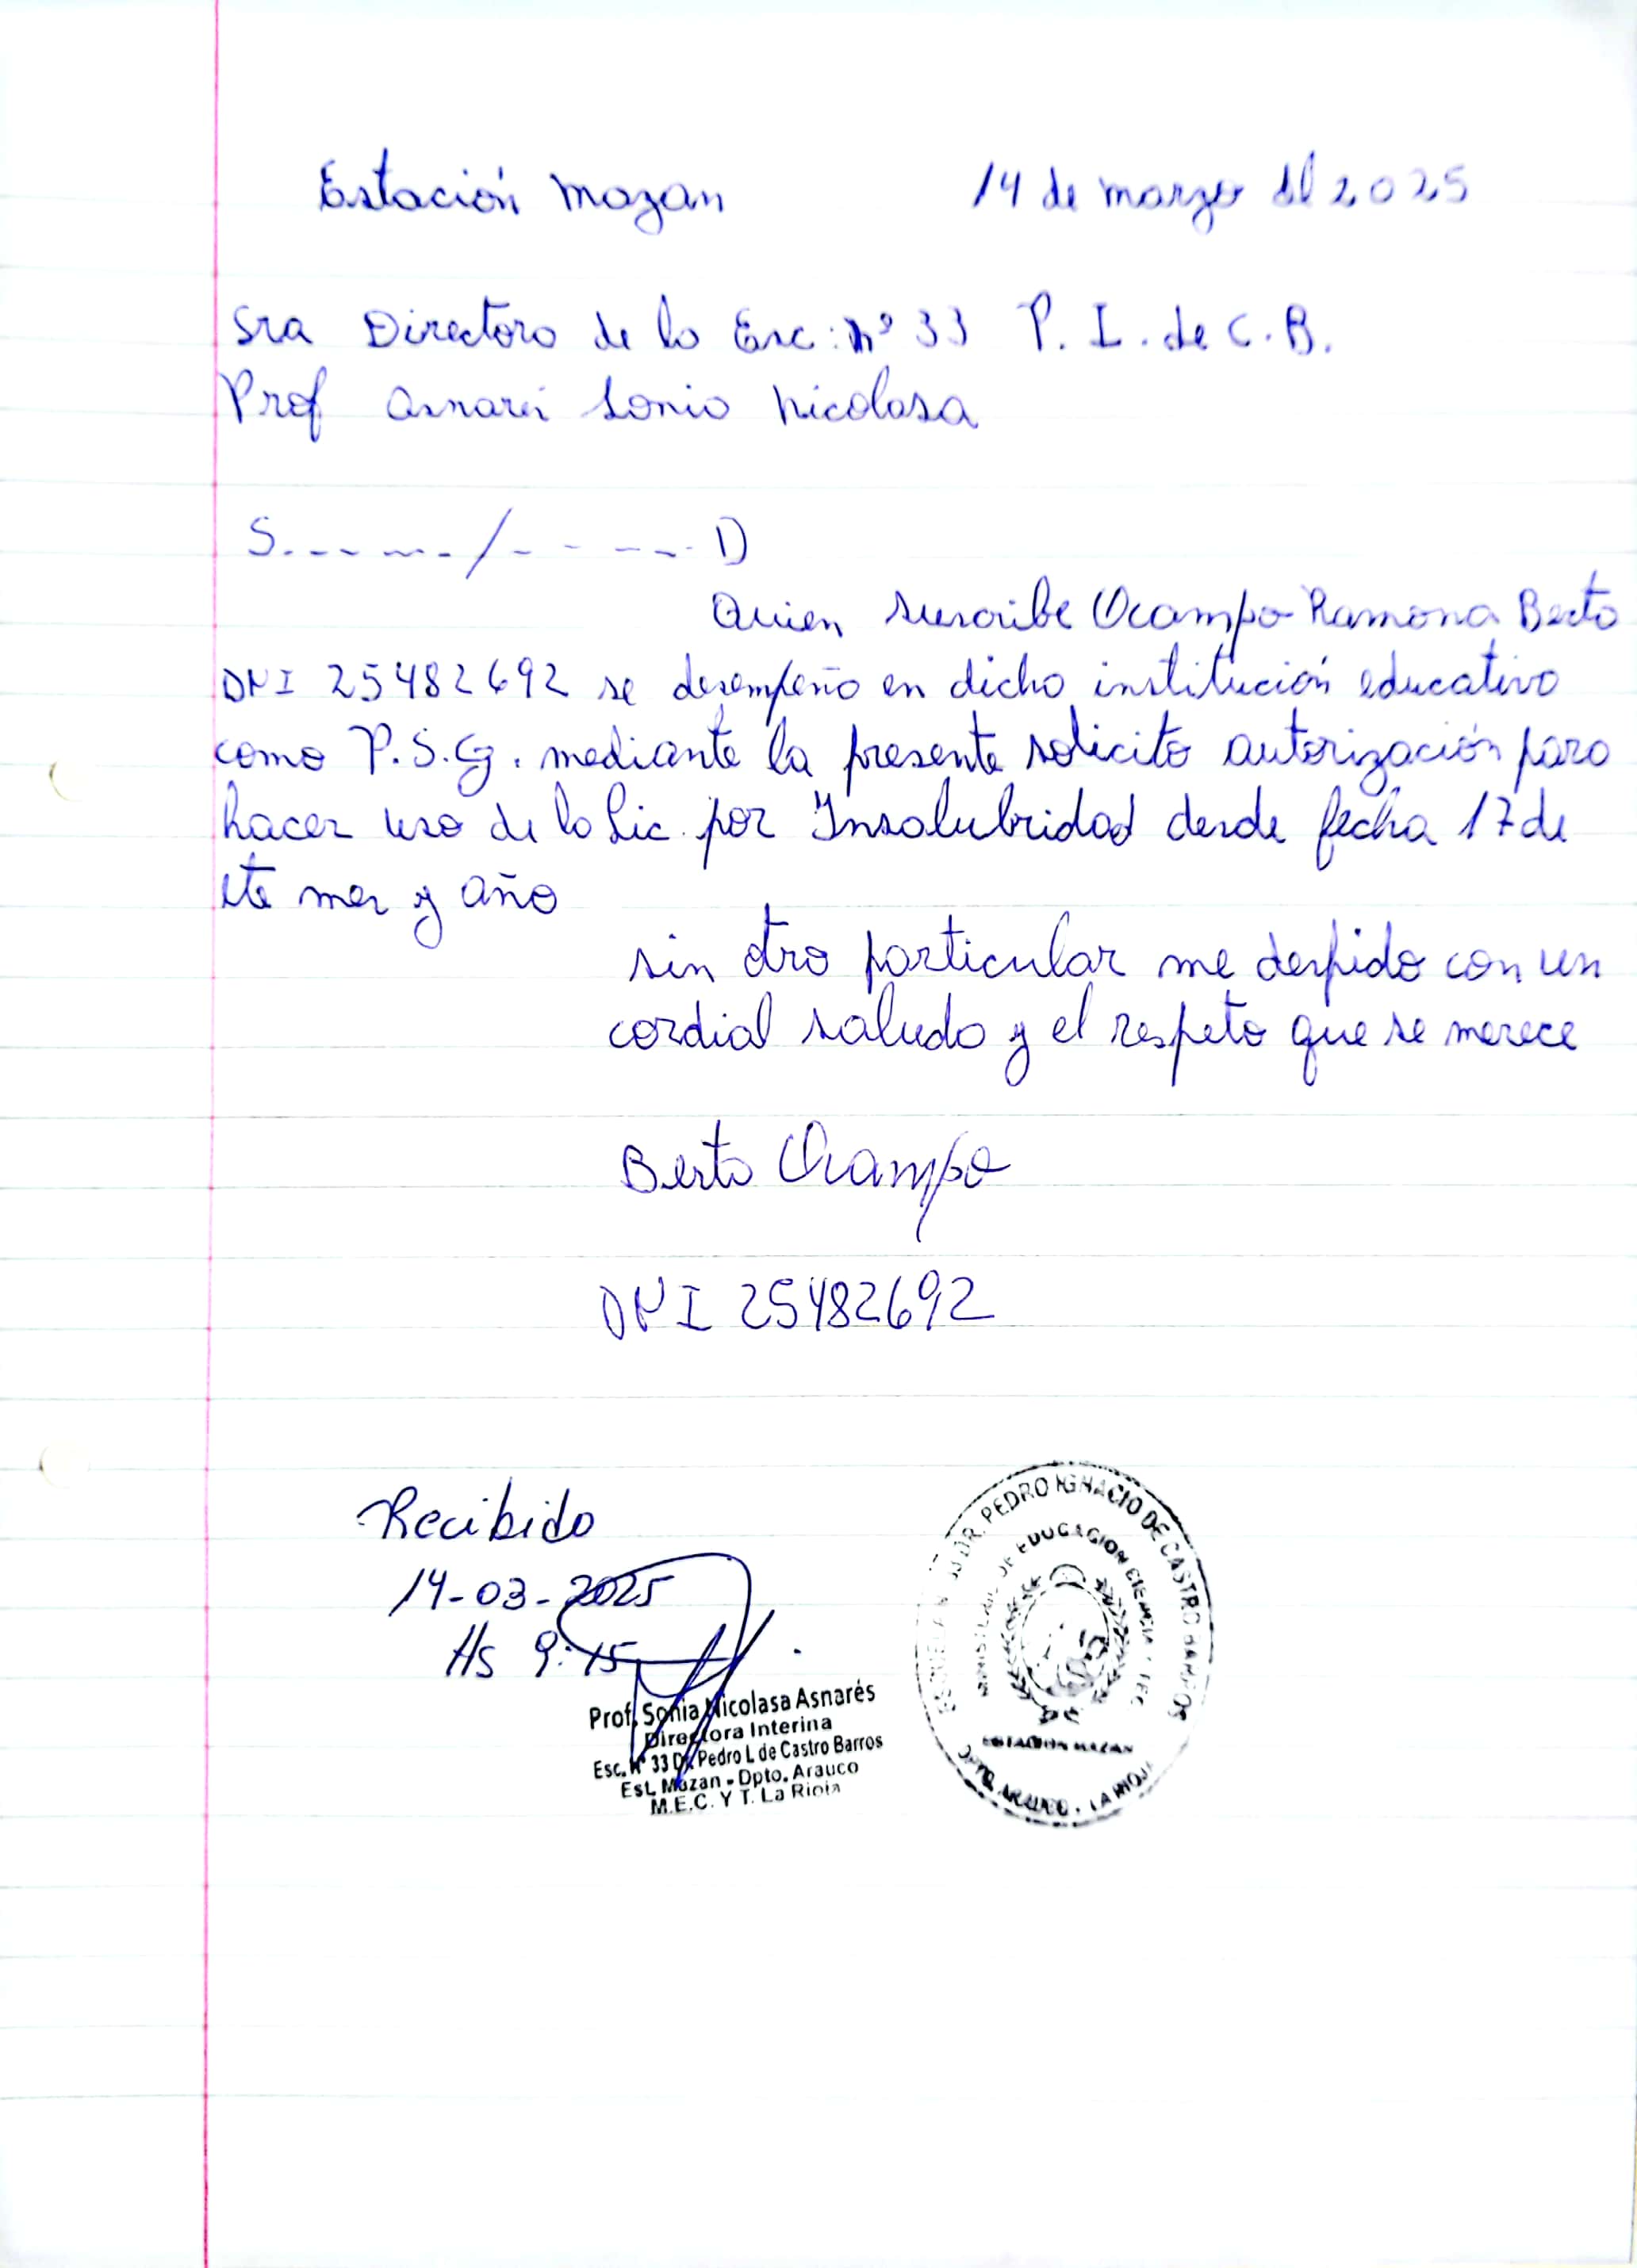 Estación Mazan 14 de marzo del 2025
Sra Directora de la Esc: Nº 33 P. I. de C. B.
Prof Asnares Sonia Nicolasa
S.-------/-------D
Quien suscribe Ocampo Ramona Berta
DNI 25482692 se desempeño en dicha institución educativa
como P.S.G. mediante la presente solicito autorización para
hacer uso de la Lic. por Insalubridad desde fecha 17 de
este mes y año
sin otro particular me despido con un
cordial saludo y el respeto que se merece
Berta Ocampo
DNI 25482692
Recibido
14-03-2025
Hs 9:15
Prof. Sonia Nicolasa Asnarés
Directora Interina
Esc. Nº 33 Dr. Pedro I. de Castro Barros
Est. Mazan - Dpto. Arauco
M.E.C. Y T. La Rioja
DR. PEDRO IGNACIO DE CASTRO BARROS
DE EDUCACION CIENCIA
ESTACION MAZAN
DPTO. ARAUCO - LA RIOJA